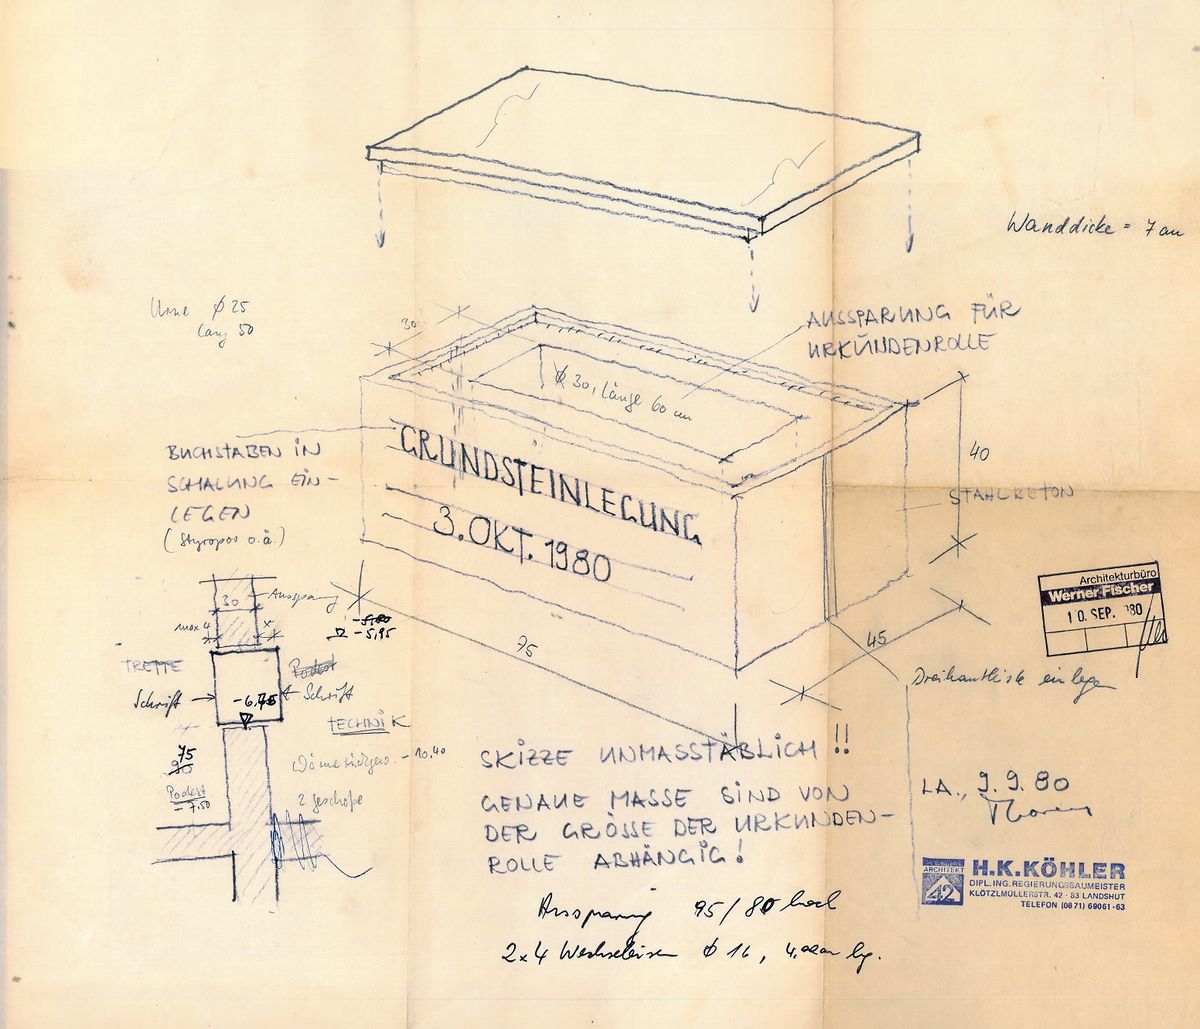 Wanddicke = 7 cm
Urne ϕ 25
lang 50
30
AUSSPARUNG FÜR
URKUNDENROLLE
ϕ 30, Länge 60 cm
BUCHSTABEN IN
SCHALUNG EIN-
LEGEN
(Styropor o.ä.)
GRUNDSTEINLEGUNG
3. OKT. 1980
40
STAHLBETON
30
Aussparung
max 4
x
-5,95
75
45
Architekturbüro
Werner Fischer
10. SEP. 80
TREPPE
Podest
Schrift
-6.75
Schrift
TECHNIK
Dreikantleiste einlegen
75
90
Podest
-7.50
-10.40
2 Geschoße
SKIZZE UNMASSTÄBLICH!!
GENAUE MASSE SIND VON
DER GRÖSSE DER URKUNDEN-
ROLLE ABHÄNGIG!
LA., 9.9.80
ARCHITEKT
42
H.K.KÖHLER
DIPL.ING.REGIERUNGSBAUMEISTER
KLÖTZLMÜLLERSTR. 42 · 83 LANDSHUT
TELEFON (0871) 69061-63
Aussparung 95/80 hoch
2x4 Wechseleisen ϕ 16, 4,00m lg.